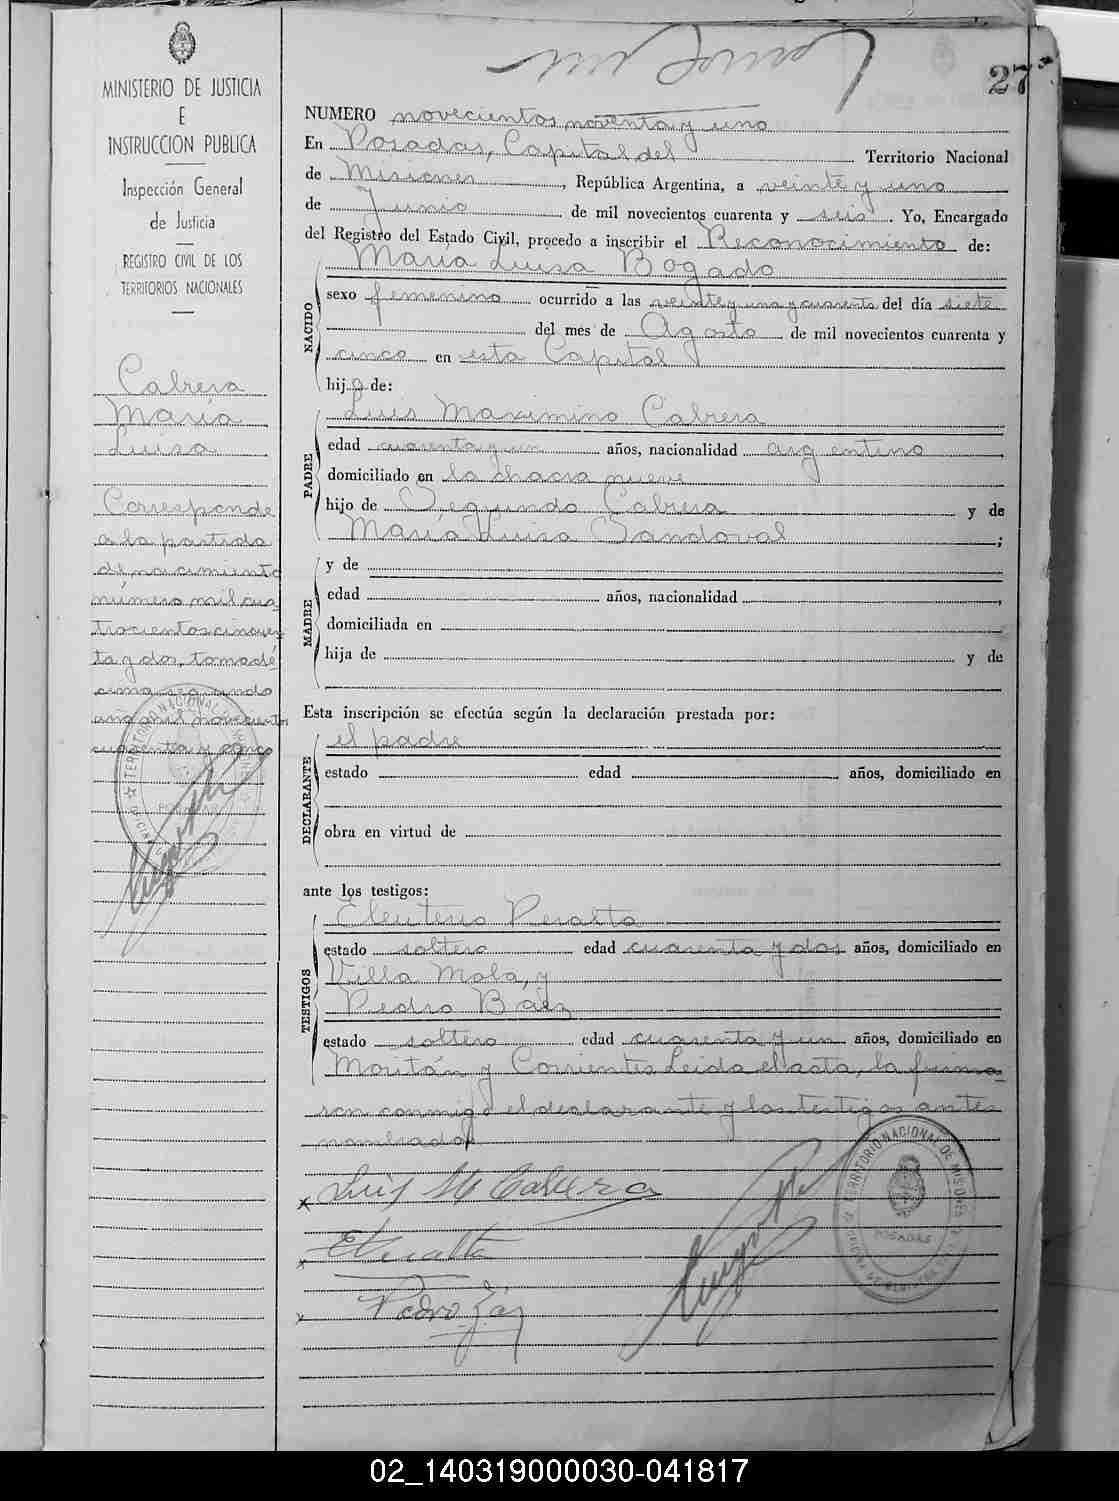 27
MINISTERIO DE JUSTICIA
E
INSTRUCCION PUBLICA
Inspección General
de Justicia
REGISTRO CIVIL DE LOS
TERRITORIOS NACIONALES
Cabrera
María
Luisa
Corresponde
a la partida
de nacimiento
número mil cua-
trocientos cincuen
ta y dos, tomo dé
cimo segundo
año mil novecientos
cuarenta y cinco
NUMERO novecientos noventa y uno
En Posadas, Capital del Territorio Nacional
de Misiones, República Argentina, a veinte y uno
de Junio de mil novecientos cuarenta y seis. Yo, Encargado
del Registro del Estado Civil, procedo a inscribir el Reconocimiento de:
María Luisa Bogado
NACIDO
sexo femenino ocurrido a las veinte y una y cuarenta del día siete
del mes de Agosto de mil novecientos cuarenta y
cinco en esta Capital
hija de:
Luis Maximino Cabrera
PADRE
edad cuarenta y un años, nacionalidad argentino
domiciliado en la chacra nueve
hijo de Segundo Cabrera y de
María Luisa Sandoval;
y de
MADRE
edad años, nacionalidad
domiciliada en
hija de y de
Esta inscripción se efectúa según la declaración prestada por:
el padre
DECLARANTE
estado edad años, domiciliado en
obra en virtud de
ante los testigos:
Eleuterio Peralta
TESTIGOS
estado soltero edad cuarenta y dos años, domiciliado en
Villa Mola, y
Pedro Báez
estado soltero edad cuarenta y un años, domiciliado en
Moritán y Corrientes Leida el acta, la firma-
ron conmigo el declarante y los testigos antes
nombrados
Luis M Cabrera
E Peralta
Pedro
TERRITORIO NACIONAL DE MISIONES
POSADAS
02_140319000030-041817